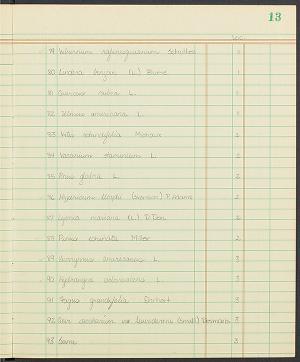 13
Loc.
79 Viburnum rafinesquianum Schultes 1
80 Lindera benzoin (L.) Blume 1
81 Quercus rubra L. 1
82 Ulmus americana L. 1
83 Vitis rotundifolia Michaux 2
84 Vaccinium stamineum L. 2
85 Rhus glabra L. 2
86 P. Adams 2
87 Lyonia mariana (L.) D. Don 2
88 Pinus echinata Miller 2
89 Euonymus americanus L. 3
90 Hydrangea arborescens L. 3
91 Fagus grandifolia Ehrhart 3
92 var. (Small) 3
93 Same 3